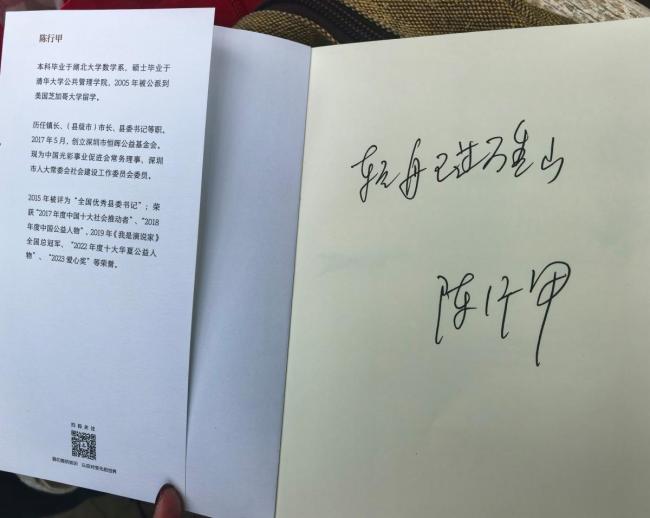 陈行甲
本科毕业于湖北大学数学系，硕士毕业于
清华大学公共管理学院，2005年被公派到
美国芝加哥大学留学。
历任镇长、（县级市）市长、县委书记等职。
2017年5月，创立深圳市恒晖公益基金会。
现为中国光彩事业促进会常务理事、深圳
市人大常委会社会建设工作委员会委员。
2015年被评为“全国优秀县委书记”；荣
获“2017年度中国十大社会推动者”、“2018
年度中国公益人物”，2019年《我是演说家》
全国总冠军、“2022年度十大华夏公益人
物”、“2023爱心奖”等荣誉。
轻舟已过万重山
陈行甲